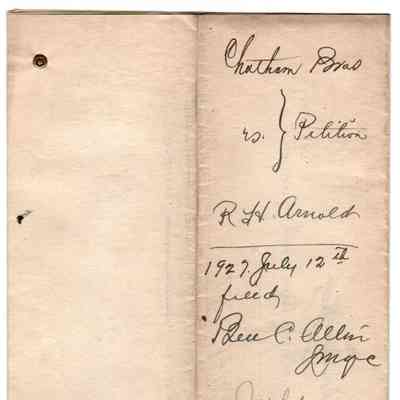 Chatham Bros
vs. } Petition
R H Arnold
1927. July 12th
filed
Ben C. Allin